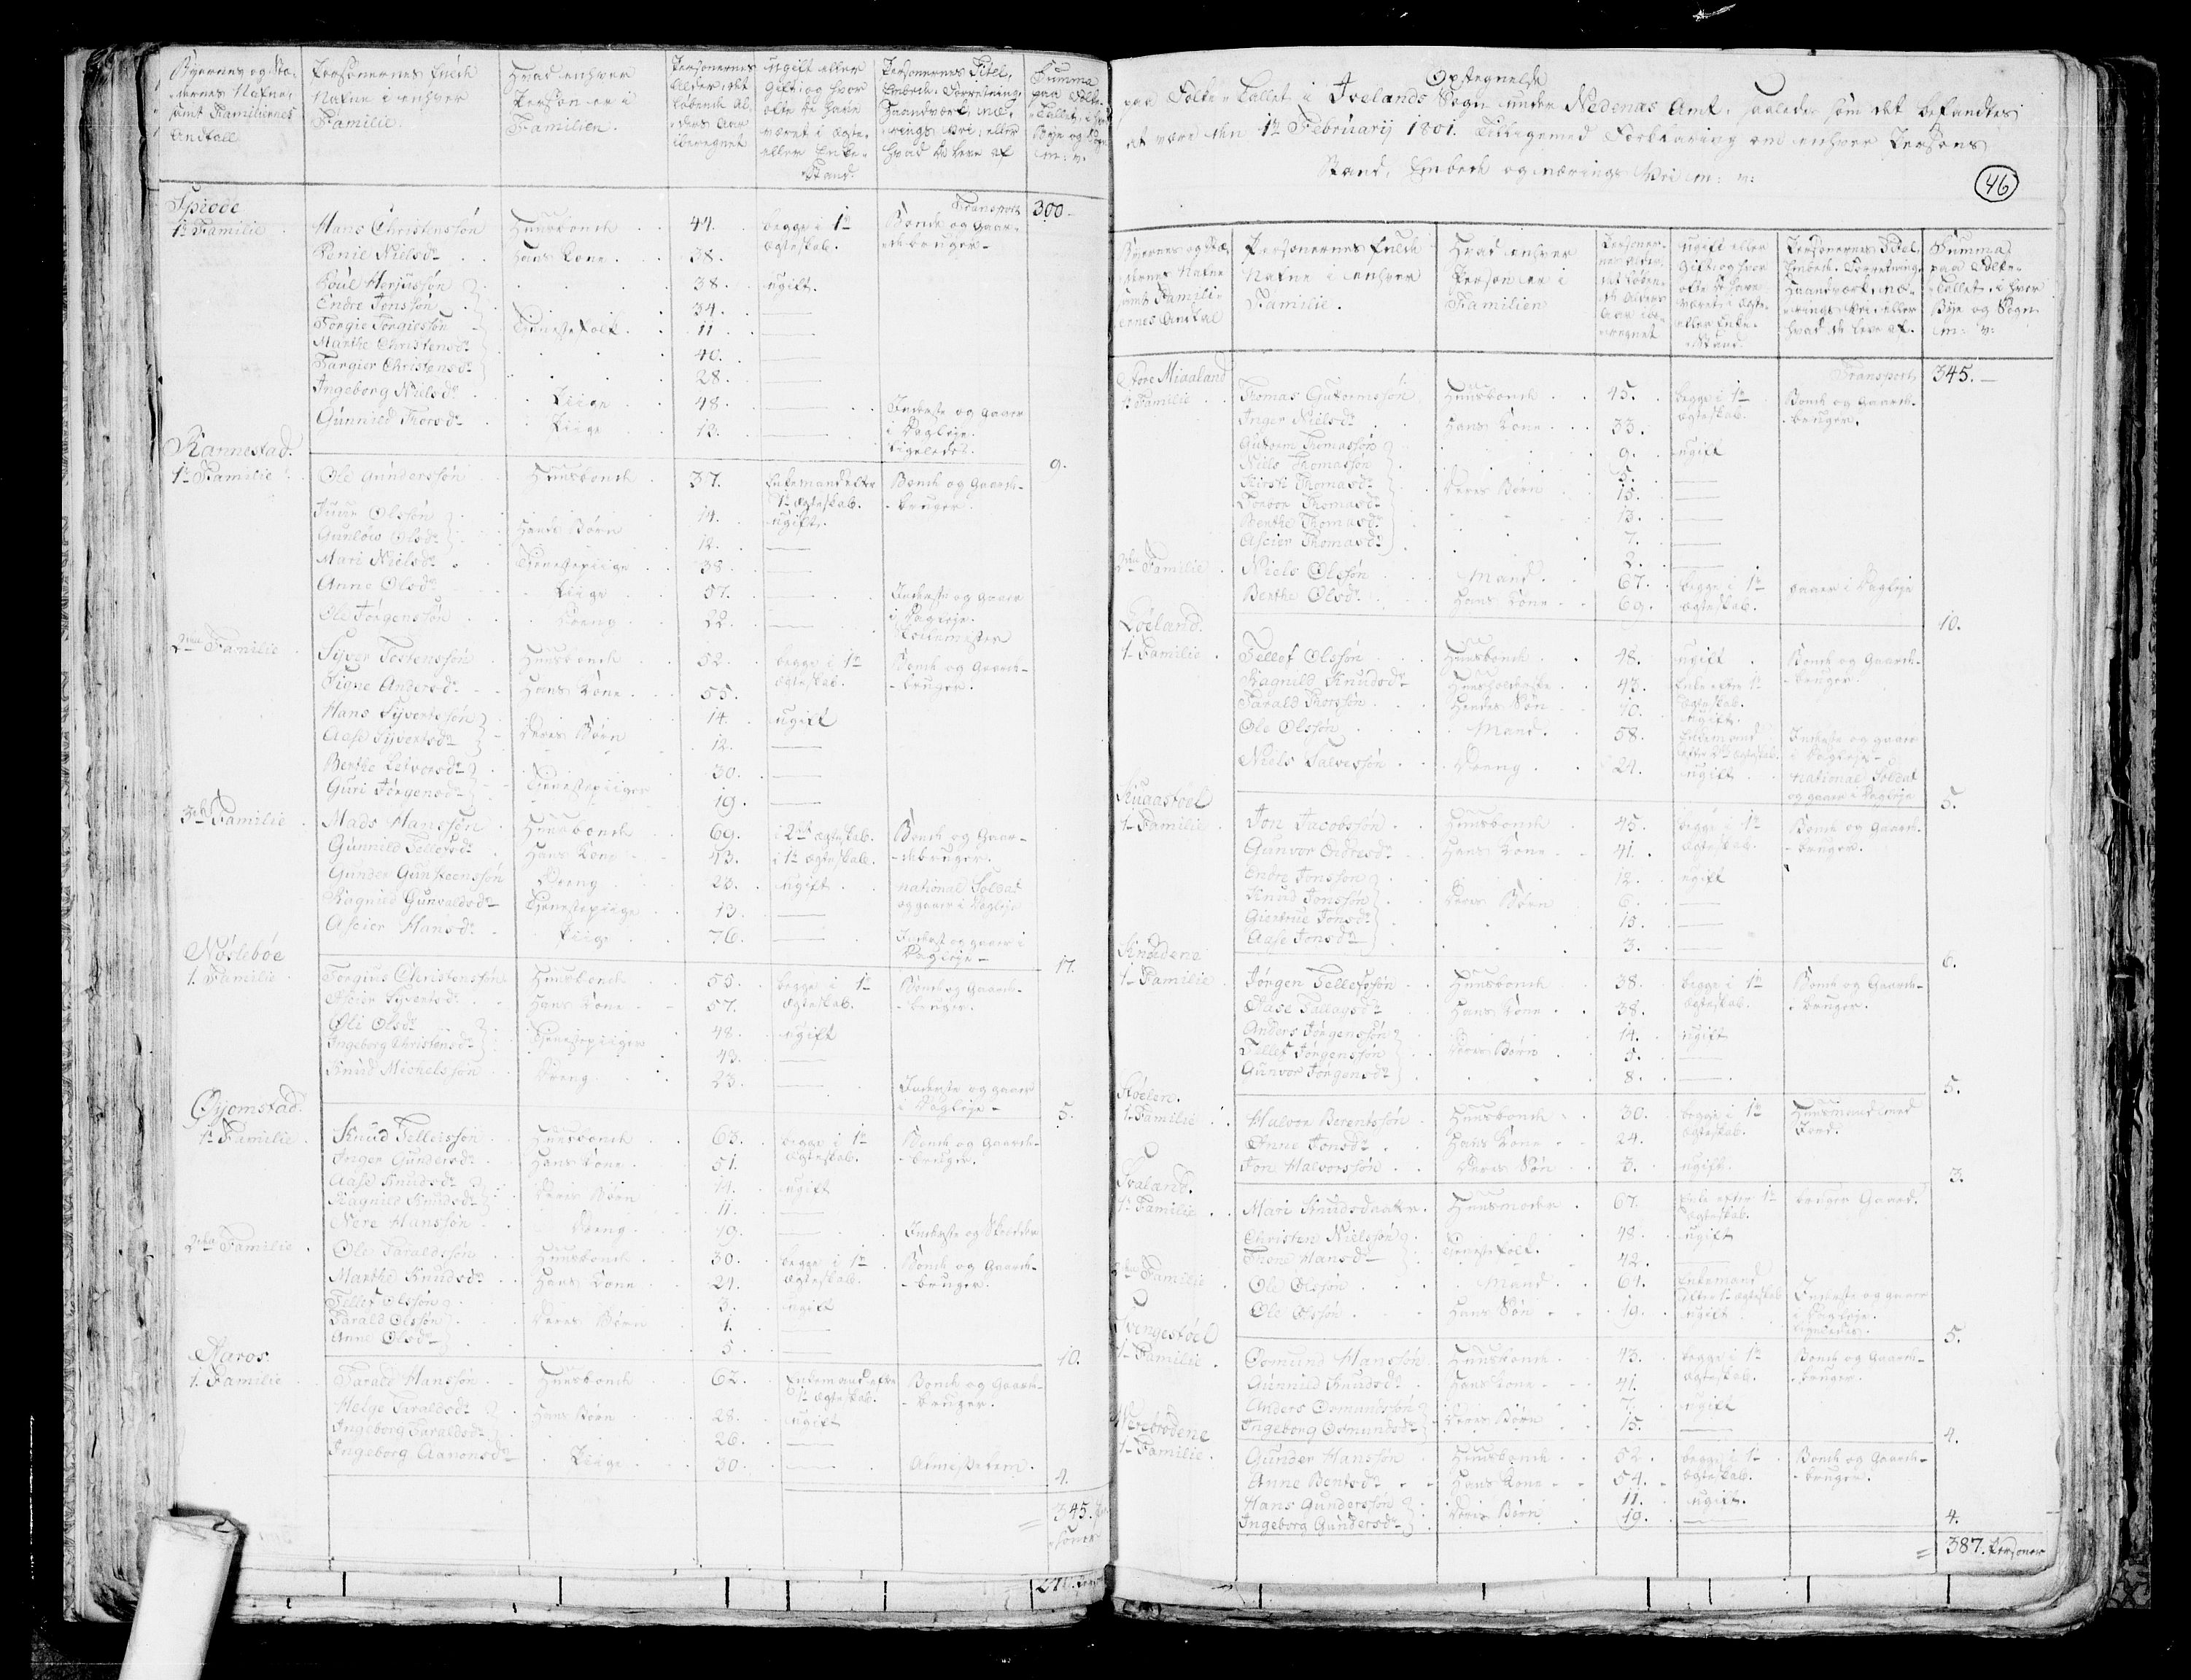 Byernes og Stædernes Nafne, samt Familiernes Antall | Personernes fulde Nafne i enhver Familie. | Hvad enhver Person er i Familien. | Personernes Alder, det løbende Alders Aar iberegnet | Ugift eller Gift, og hvor ofte de have været i Ægte- eller Enke-Stand. | Personernes Titel, Embede, Forretning, Haandværk, Nærings Vei, eller hvad de leve af | Summa paa Folke-Tallet i hver Bye og Sogn m: v:
Transport 300
1te Familie
Hans Christenssøn Huusbonde 44. begge i 1te Ægteskab. Bonde og Gaardebruger
Nielsdr Hans Kone 38.
38. ugift.
Endre Jonssøn 34.
Torgie Torgiessøn Tienestefolk 11
Marthe Christensdr 40.
Targier Christensdr 28.
Ingeborg Nielsdr Piige 48. Inderste og gaaer i Dagleje.
Gunnild Thorsdr Piige 12. ligeledes.
9.
Rannestad.
1te Familie
Ole Gunderssøn Huusbonde 37. Enkemand efter 1te Ægteskab. Bonde og Gaardebruger.
Olssøn 14. ugift.
Gunlow Olsdr Hands Børn 12.
Mari Nielsdr Tienestepiige 38.
Anne Olsdr Piige 57. Inderste og gaaer i Dagleje.
Ole Jørgenssøn Dreng 22.
2den Familie
Syver Tostenssøn Huusbonde 52. begge i 1te Ægteskab. Bonde og Gaardebruger.
Signe Andersdr Hans Kone 55.
Hans Syvertssøn 14. ugift
Aase Syvertsdr Deres Børn 12.
Berthe 30.
Guri Jørgensdr Tienestepiiger 19.
3de Familie
Mads Hanssøn Huusbonde 69. i 2det Ægteskab. Bonde og Gaardebruger.
Gunnild Tellefsdr Hans Kone 43. i 1te Ægteskab.
Gunder Dreng 23. ugift National Soldat og gaaer i Dagleje
Ragnild Gunvaldsdr Tienestepiige 13.
Aseier Hansdr Piige 76. Inderst og gaaer i Dagleje
17.
Nöslebøe
1. Familie
Torgius Christenssøn Huusbonde 55. begge i 1te Ægteskab. Bonde og Gaardebruger.
Syvertsdr Hans Kone 57.
Olsdr 48. ugift
Ingeborg Christensdr Tienestepiiger 43.
Knud Michelssøn Dreng 23. Inderste og gaaer i Dagleje
5.
Øyomstad.
1te Familie
Knud Huusbonde 63. begge i 1te Ægteskab. Bonde og Gaardebruger.
Inger Gundersdr Hans Kone 51.
Aase Knudsdr 14. ugift
Ragnild Knudsdr Deres Børn 11.
Nere Hanssøn Dreng 49. Inderste og Skredder
2den Familie
Ole Taraldssøn Huusbonde 30. begge i 1te Ægteskab. Bonde og Gaardebruger.
Marthe Knudsdr Hans Kone 24.
Tellef Olssøn 3. ugift
Tarald Olssøn Deres Børn 1.
Anne Olsdr 5.
10.
Aaros.
1. Familie
Tarald Hanssøn Huusbonde 62. Enkemand efter 1te Ægteskab. Bonde og Gaardebruger.
Helge Taraldsdr Hans Børn 28. ugift
Ingeborg Taraldsdr 26.
Ingeborg Aanonsdr Piige 30. Almisselem.
4.
345. Personer
Optegnelse
paa Folke-Tallet i Ivelands Sogn under Nedenæs Amt, saaledes som det befandtes
at være den 1te Februarij 1801. Tilligemed Forklaring om enhver Persons
Stand, Embede og nærings Vei m: v:
46
Byernes og Stædernes Nafne samt Familiernes Antal | Personernes fulde Nafne i enhver Familie. | Hvad enhver Person er i Familien | Personernes Alder, det løbende Alders Aar iberegnet | Ugift eller Gift, og hvor ofte de have været i Ægte- eller Enke-Stand. | Personernes Titel, Embede, Forretning, Haandværk, Nærings Vei, eller hvad de leve af. | Summa paa Folke-Tallet i hver Bye og Sogn m: v:
Transport 345.
Store Miaaland
1te Familie
Thomas Gutormssøn Huusbonde 45. begge i 1te Ægteskab. Bonde og Gaardebruger.
Inger Nielsdr Hans Kone 33.
Gutorm Thomassøn 9. ugift
Niels Thomassøn 5.
Kirsti Thomasdr Deres Børn 15.
Thomasdr 13.
Berthe Thomasdr 7.
Aseier Thomasdr 2.
2den Familie
Niels Olssøn Mand 67. begge i 1te Ægteskab. gaaer i Dagleje
Berthe Olsdr Hans Kone 69.
10.
1te Familie
Tellef Olssøn Huusbonde 48. ugift Bonde og Gaardebruger.
Ragnild Knudsdr Huusholderske 43. Enke efter 1te Ægteskab.
Tarald Thorssøn Hendes Søn 10. ugift.
Ole Olssøn Mand 58. Enkemand Inderste og gaaer i Dagleje
Niels Salvessøn Dreng 24. ugift National Soldat og gaaer i Dagleje
5.
1te Familie
Jon Jacobssøn Huusbonde 45. begge i 1te Ægteskab. Bonde og Gaardebruger.
Gunvor Endresdr Hans Kone 41.
Endre Jonssøn 12. ugift
Knud Jonssøn Deres Børn 6.
Giertrue Jonsdr 15.
Aase Jonsdr 3.
6.
Knudene
1te Familie
Jørgen Tellefssøn Huusbonde 38. begge i 1te Ægteskab. Bonde og Gaardebruger.
Hans Kone 38.
Anders Jørgenssøn 14. ugift
Tellef Jørgenssøn Deres Børn 5.
Gunvor Jørgensdr 8.
5.
Støelen.
1te Familie
Halvor Berentssøn Huusbonde 30. begge i 1te Ægteskab. Huusmand med Jord.
Anne Jonsdr Hans Kone 24.
Jon Halvorssøn Deres Søn 3. ugift.
3.
1te Familie
Mari Knudsdaatter Huusmoder 67. Enke efter 1te Ægteskab. bruger Gaard.
Christen Nielssøn 48. ugift
Thone Hansdr Tienestefolk. 42.
2den Familie
Ole Olssøn Mand 64. Enkemand efter 1te Ægteskab Inderste og gaaer i Dagleje.
Ole Olssøn Hans Søn 19. ugift ligeledes.
5.
1te Familie
Osmund Hanssøn Huusbonde 43. begge i 1te Ægteskab. Bonde og Gaardebruger.
Gunnild Knudsdr Hans Kone 41.
Anders Osmundssøn 7. ugift
Ingeborg Osmundsdr Deres Børn 15.
4.
1te Familie
Gunder Hanssøn Huusbonde 52. begge i 1te Ægteskab. Bonde og Gaardebruger.
Anne Bentsdr Hans Kone 54.
Hans Gunderssøn 11. ugift.
Ingeborg Gundersdr Deres Børn 19.
4.
= 387. Personer